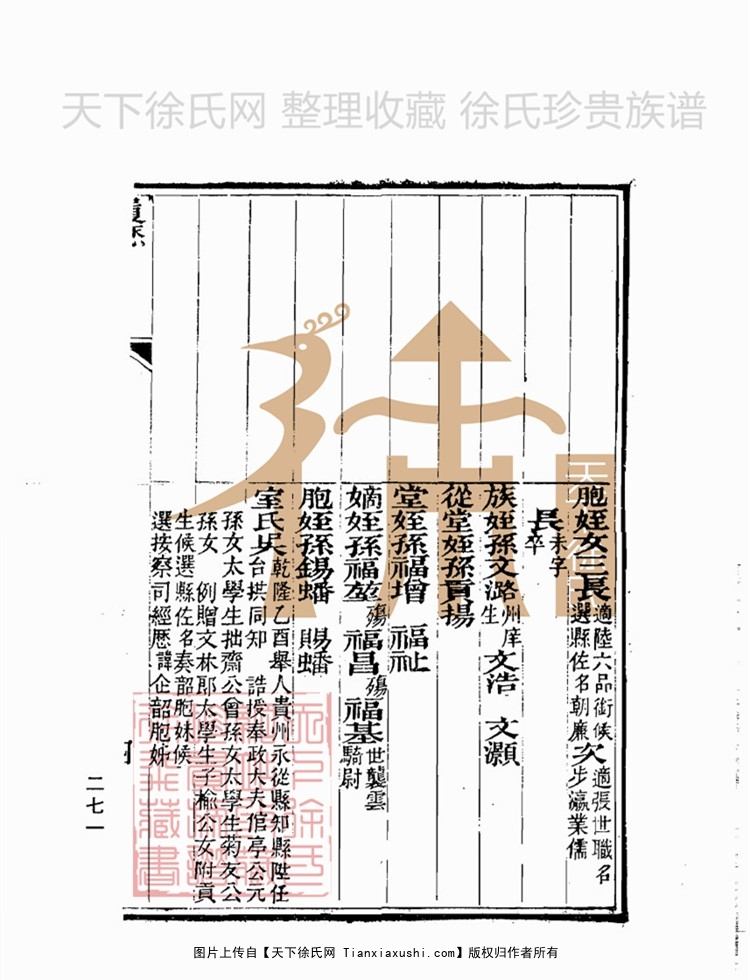 天下徐氏网 整理收藏 徐氏珍贵族谱
胞姪女三長適陸六品銜候選縣佐名朝廉次適張世職名步瀛業儒
長未字卒
族姪孫文潞州庠生 文浩 文灝
從堂姪孫貢揚
堂姪孫福增 福祉
嫡姪孫福堃殤 福昌殤 福基世襲雲騎尉
胞姪孫錫蟠 賜蟠
室氏吳乾隆乙酉舉人貴州永從縣知縣陞任
台拱同知 誥授奉政大夫倌亭公元
孫女太學生拙齋公曾孫女太學生菊友公
孫女 例贈文林郎太學生子榆公女附貢
生候選縣佐名奏韶胞妹候
選按察司經歷諱企韶胞姊
二七一
图片上传自【天下徐氏网 Tianxiaxushi.com】版权归作者所有